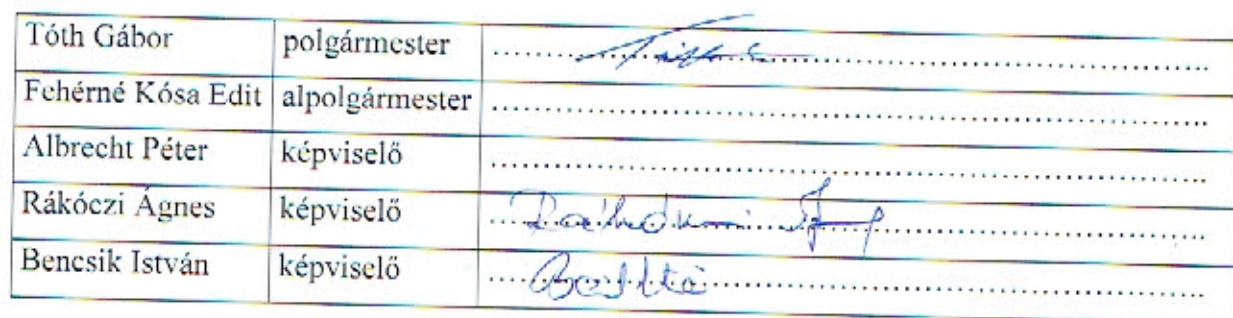 Tóth Gábor polgármester
Fehérné Kósa Edit alpolgármester
Albrecht Péter képviselő
Rákóczi Ágnes képviselő
Bencsik István képviselő